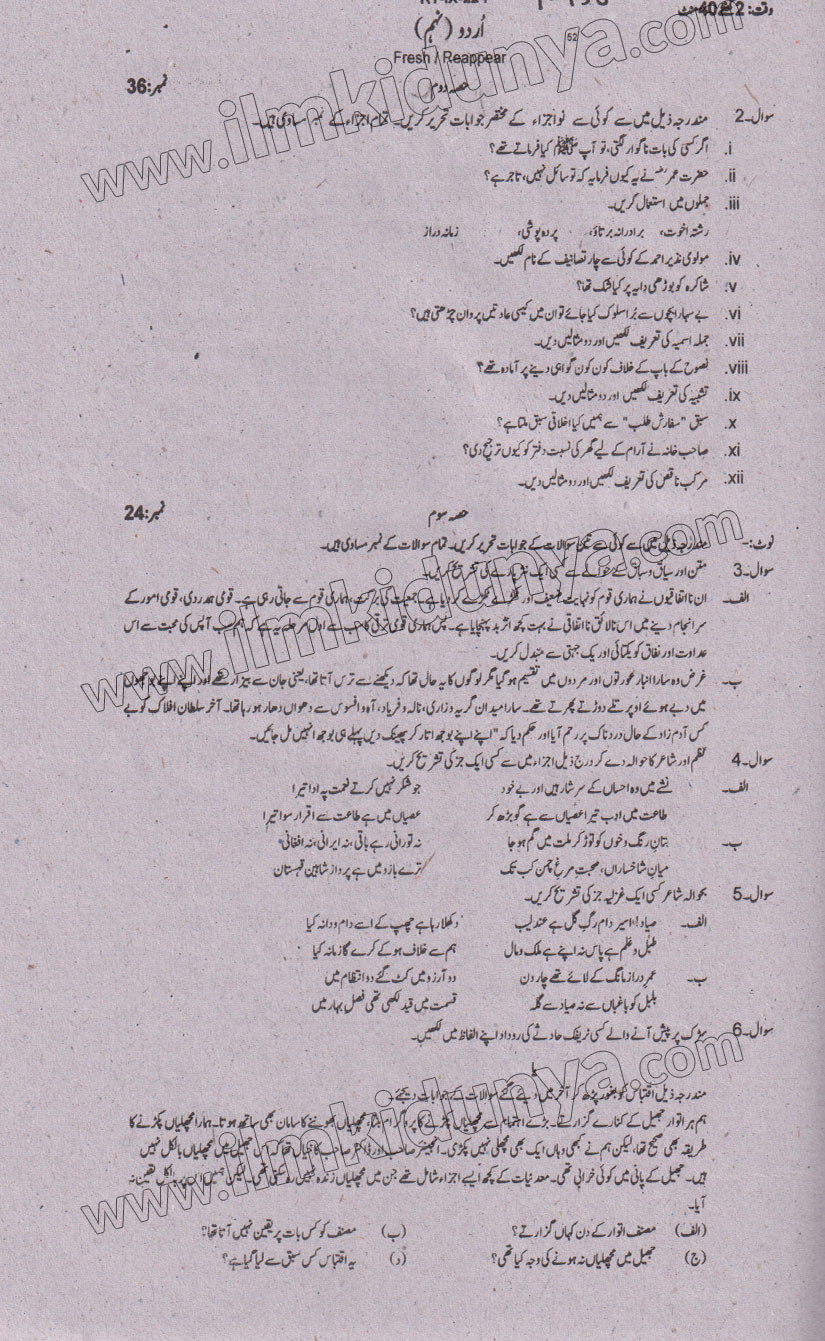 وقت: 2 گھنٹے 40 منٹ
اُردو (نہم)
52
Fresh / Reappear
حصہ دوم
نمبر:36
سوال۔2 مندرجہ ذیل میں سے کوئی سے نو اجزاء کے مختصر جوابات تحریر کریں۔ تمام اجزاء کے نمبر مساوی ہیں۔
i. اگر کسی کی بات ناگوار لگتی، تو آپ ﷺ کیا فرماتے تھے؟
ii. حضرت عمرؓ نے یہ کیوں فرمایا کہ تو سائل نہیں، تاجر ہے؟
iii. جملوں میں استعمال کریں۔
رشتہ اخوت، برادرانہ برتاؤ، پردہ پوشی، زمانہ دراز
iv. مولوی نذیر احمد کے کوئی سے چار تصانیف کے نام لکھیں۔
v. شاکرہ کو بوڑھی دایہ پر کیا شک تھا؟
vi. بے سہارا بچوں سے بُرا سلوک کیا جائے تو ان میں کیسی عادتیں پروان چڑھتی ہیں؟
vii. جملہ اسمیہ کی تعریف لکھیں اور دو مثالیں دیں۔
viii. نصوح کے باپ کے خلاف کون کون گواہی دینے پر آمادہ تھے؟
ix. تشبیہ کی تعریف لکھیں اور دو مثالیں دیں۔
x. سبق "سفارش طلب" سے ہمیں کیا اخلاقی سبق ملتا ہے؟
xi. صاحب خانہ نے آرام کے لیے گھر کی نسبت دفتر کو کیوں ترجیح دی؟
xii. مرکب ناقص کی تعریف لکھیں اور دو مثالیں دیں۔
حصہ سوم
نمبر:24
نوٹ:۔ مندرجہ ذیل میں سے کوئی سے تین سوالات کے جوابات تحریر کریں۔ تمام سوالات کے نمبر مساوی ہیں۔
سوال۔3 متن اور سیاق و سباق کے حوالے سے کسی ایک نثرپارے کی تشریح کریں۔
الف۔ ان نااتفاقیوں نے ہماری قوم کو نہایت ضعیف اور ٹکڑے ٹکڑے کر دیا ہے۔ جمعیت کی برکت، ہماری قوم سے جاتی رہی ہے۔ قومی ہمدردی، قومی امور کے
سرانجام دینے میں اس نالائق نااتفاقی نے بہت کچھ اثر بد پہنچایا ہے۔ پس ہماری قومی ترقی کا سب سے اول مرحلہ یہ ہے کہ ہم سب آپس کی محبت سے اس
عداوت اور نفاق کو یکتائی اور یک جہتی سے مبدل کریں۔
ب۔ غرض وہ سارا انبار عورتوں اور مردوں میں تقسیم ہو گیا مگر لوگوں کا یہ حال تھا کہ دیکھنے سے ترس آتا تھا، یعنی جان سے بیزار تھے اور اپنے اپنے بوجھوں
میں دبے ہوئے اوپر تلے دوڑتے پھرتے تھے۔ سارا میدان گریہ و زاری، نالہ و فریاد، آہ و افسوس سے دھواں دھار ہو رہا تھا۔ آخر سلطان افلاک کو بے
کس آدم زاد کے حال دردناک پر رحم آیا اور حکم دیا کہ "اپنے اپنے بوجھ اتار کر پھینک دیں پہلے ہی بوجھ انہیں مل جائیں۔
سوال۔4 نظم اور شاعر کا حوالہ دے کر درج ذیل اجزاء میں سے کسی ایک جز کی تشریح کریں۔
الف۔ نشے میں وہ احساں کے سرشار ہیں اور بے خود جو شکر نہیں کرتے نعمت پہ ادا تیرا
طاعت میں ادب تیرا عصیاں سے ہے گو بڑھ کر عصیاں میں ہے طاعت سے اقرار سوا تیرا
ب۔ بتانِ رنگ و خوں کو توڑ کر ملت میں گم ہو جا نہ تورانی رہے باقی، نہ ایرانی، نہ افغانی
میانِ شاخساراں، صحبتِ مرغِ چمن کب تک ترے بازو میں ہے پرواز شاہینِ قہستانی
سوال۔5 بحوالہ شاعر کسی ایک غزلیہ جز کی تشریح کریں۔
الف۔ صیاد! اسیر دام رگ گل ہے عندلیب دکھلا رہا ہے چھپ کے اسے دام و دانہ کیا
طبل و علم ہے پاس نہ اپنے ہے ملک و مال ہم سے خلاف ہو کے کرے گا زمانہ کیا
ب۔ عمر دراز مانگ کے لائے تھے چار دن دو آرزو میں کٹ گئے دو انتظام میں
بلبل کو باغباں سے نہ صیاد سے گلہ قسمت میں قید لکھی تھی فصلِ بہار میں
سوال۔6 سڑک پر پیش آنے والے کسی ٹریفک حادثے کی روداد اپنے الفاظ میں لکھیں۔
یا
مندرجہ ذیل اقتباس کو بغور پڑھ کر آخر میں دیے گئے سوالات کے جوابات دیجئے۔
ہم ہر اتوار جھیل کے کنارے گزارتے۔ بڑے اہتمام سے مچھلیاں پکڑنے کا پروگرام بنتا، مچھلیاں بھوننے کا سامان بھی ساتھ ہوتا۔ ہمارا مچھلیاں پکڑنے کا
طریقہ بھی صحیح تھا، لیکن ہم نے کبھی وہاں ایک بھی مچھلی نہیں پکڑی۔ انجینئر صاحب اور ڈاکٹر صاحب کا خیال تھا کہ اس جھیل میں مچھلیاں بالکل نہیں
ہیں۔ جھیل کے پانی میں کوئی خرابی تھی۔ معدنیات کے کچھ ایسے اجزاء شامل تھے جن میں مچھلیاں زندہ نہیں رہ سکتی تھیں۔ لیکن ہمیں ان پر بالکل یقین نہ
آیا۔
(الف) مصنف اتوار کے دن کہاں گزارتے؟ (ب) مصنف کو کس بات پر یقین نہیں آتا تھا؟
(ج) جھیل میں مچھلیاں نہ ہونے کی وجہ کیا تھی؟ (د) یہ اقتباس کس سبق سے لیا گیا ہے؟
www.ilmkidunya.com
www.ilmkidunya.com
www.ilmkidunya.com